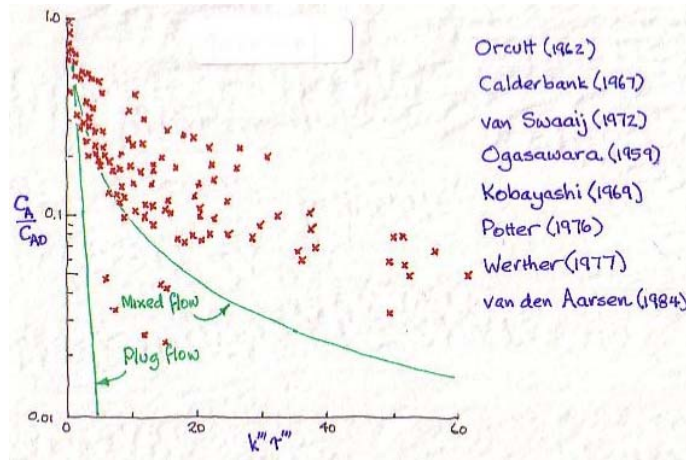 1.0
0.1
0.01
C_A
C_AD
0
20
40
60
k''' τ'''
Mixed flow
Plug flow
Orcutt (1962)
Calderbank (1967)
van Swaaij (1972)
Ogasawara (1959)
Kobayashi (1969)
Potter (1976)
Werther (1977)
van den Aarsen (1984)